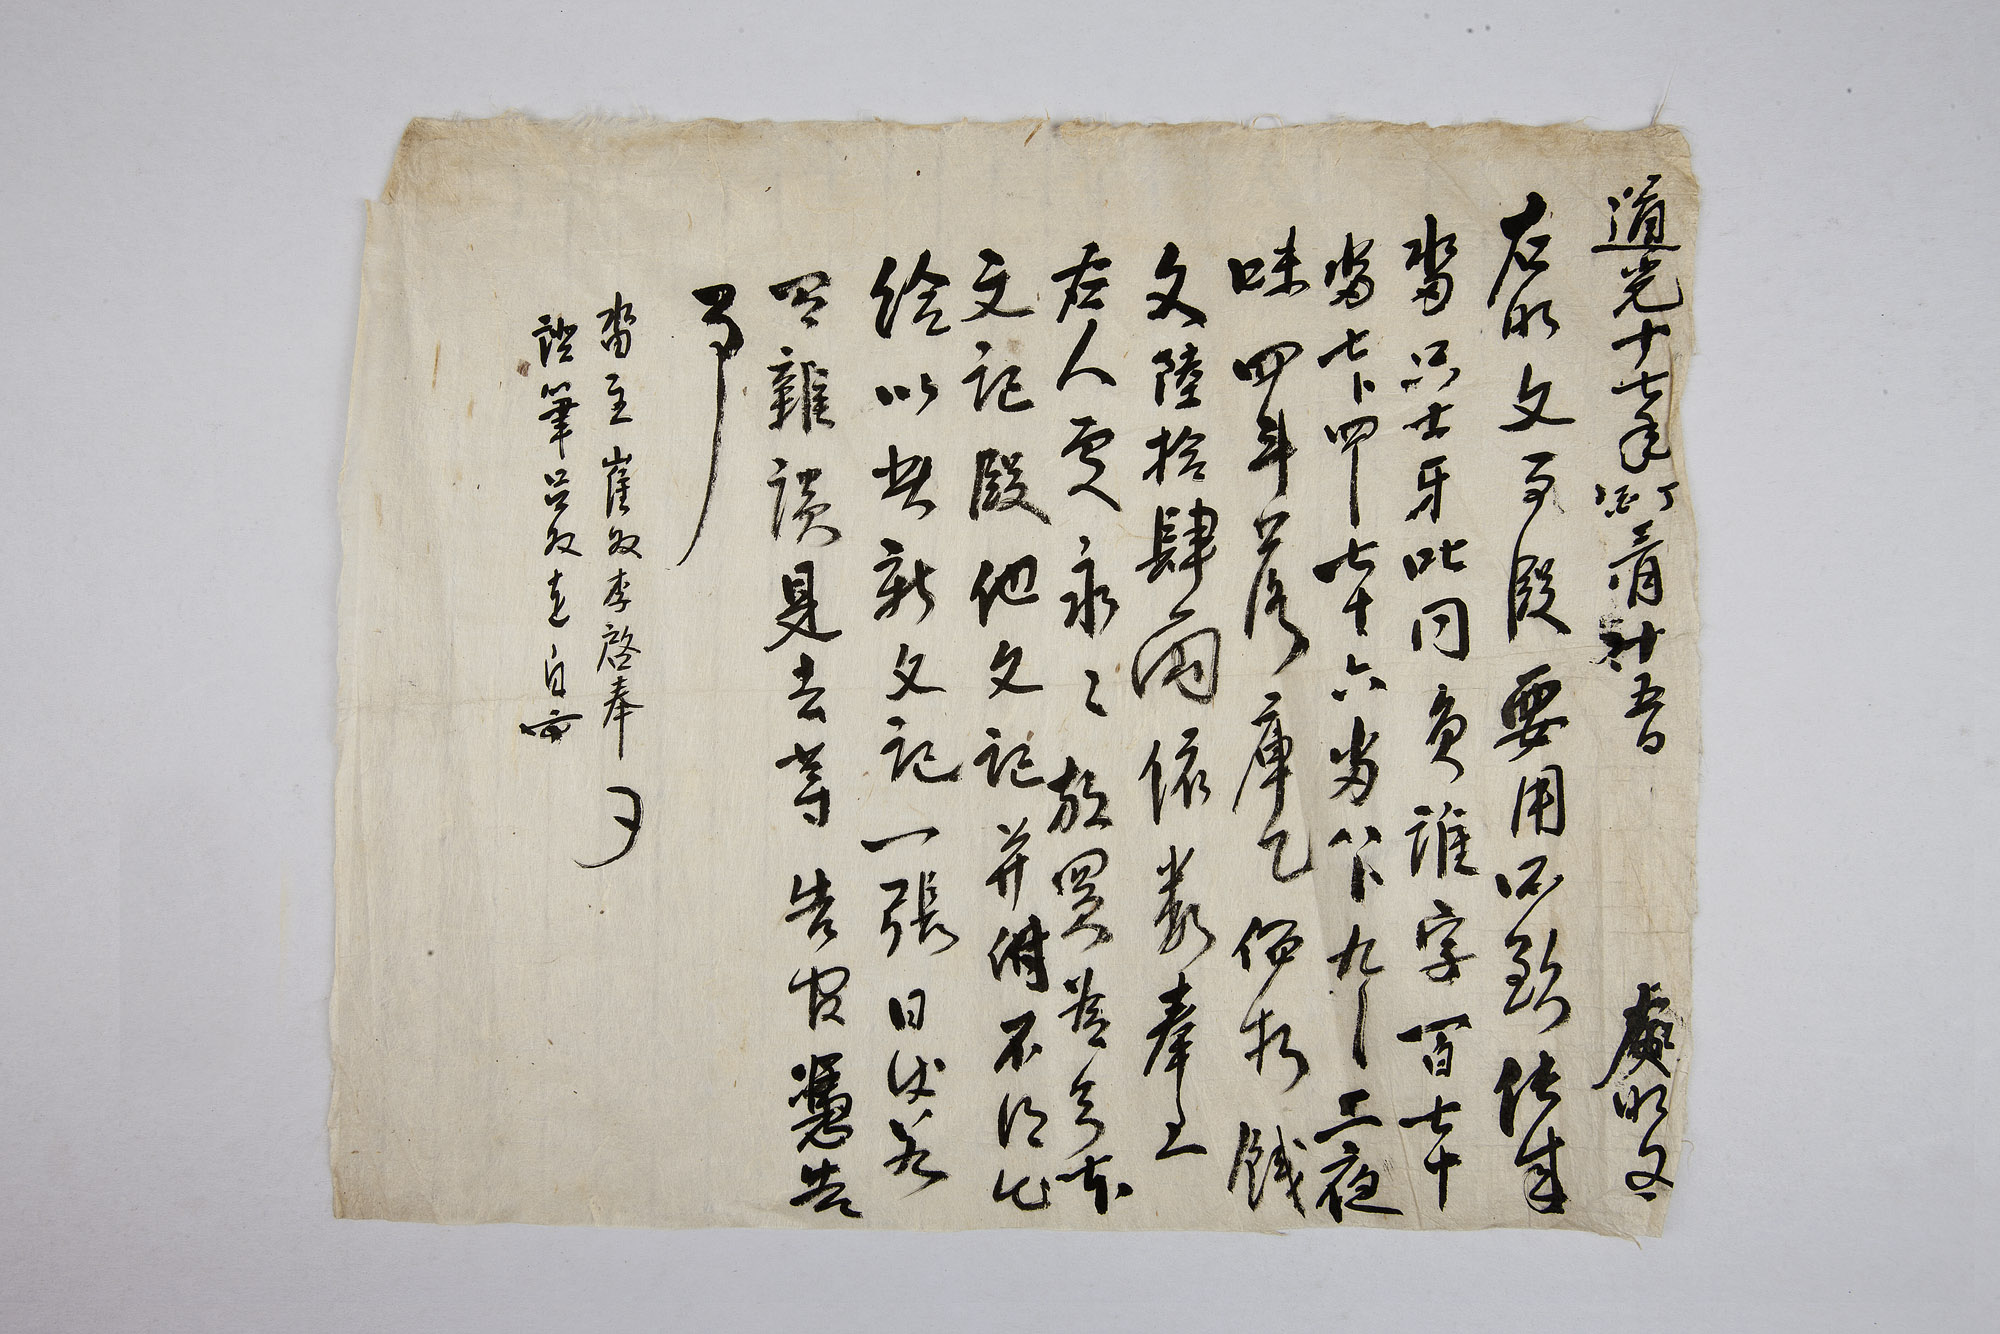 道光十七年丁酉二月廿五日 處明文
右明文事段要用所致傳來
畓只士牙叱同員誰字百七十
畓七卜四 七十六畓 卜九 二夜
味四斗落庫乙價折錢
文陸拾肆兩依數奉上
右人處永〻放賣爲乎矣本
文記段他文記并付不得乙
給以此新文記一張日後若
有雜談是去等告官憑告
事
畓主崔奴李啓奉
證筆呂奴 自